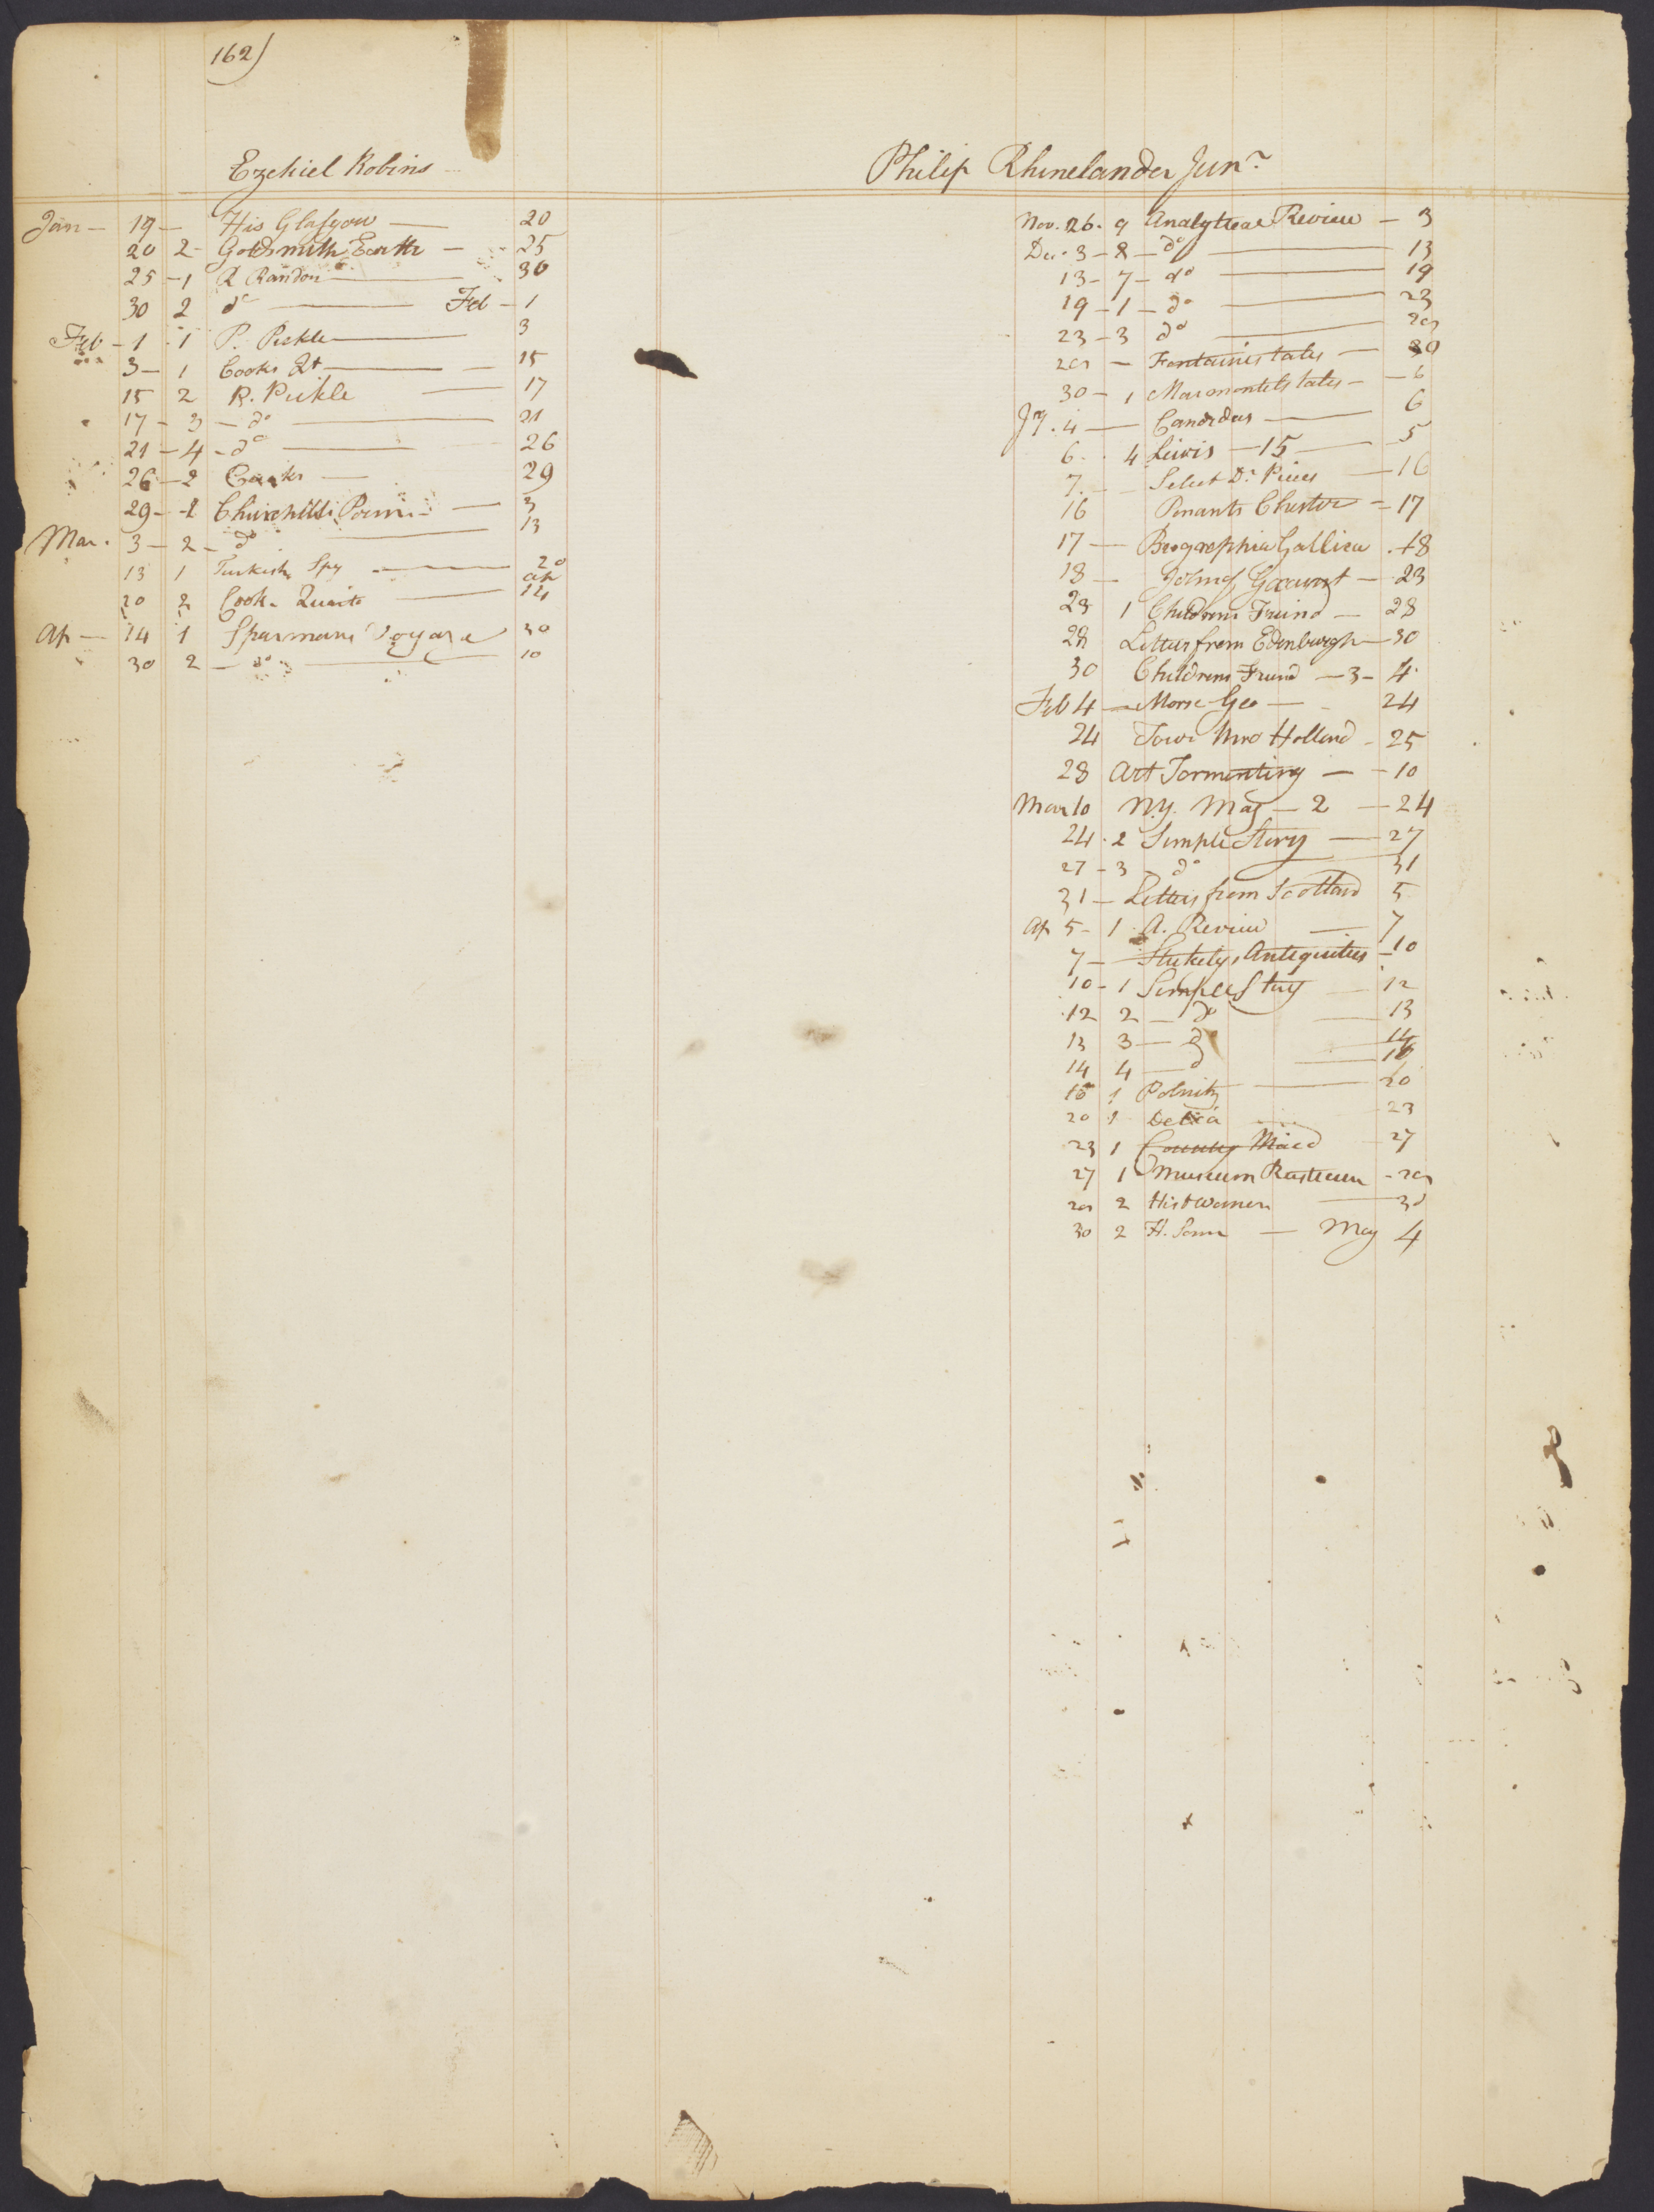 162)
Ezekiel Robins
Jan - 19 - His Glasgow - 20
20 2 - Goldsmith Earth - 25
25 - 1 R Random - 30
30 2 do - Feb - 1
Feb - 1 - 1 P. Pickle - 3
3 - 1 Cooks Qt - 15
15 2 R. Pickle - 17
17 - 3 - do - 21
21 - 4 - do - 26
26 - 2 Cooks - 29
29 - 1 Churchills Poems - 3
Mar. 3 - 2 - do - 13
13 1 Turkish Spy - 20
20 2 Cook. Quixote - ap 14
Ap - 14 1 Sparmans Voyage 30
30 2 - do - 10
Philip Rhinelander Junr
Nov. 26. 9 Analytical Review - 3
Dec. 3 - 8 - do - 13
13 - 7 - do - 19
19 - 1 - do - 23
23 - 3 do - 29
29 - Fontaines tales - 30
30 - 1 Marmontels tales - 6
Jy. 4 - Candidus - 6
6. 4 Lewis - 15 - 5
7. - Select Dr. Pieces - 16
16 Penants Chester - 17
17 - Biographia Gallica . 18
18 - 23
23 1 Childrens Friend - 28
28 Letters from Edenburgh - 30
30 Childrens Friend - 3 - 4
Feb 4 - Morse Geo - 24
24 Tour thro Holland - 25
28 Art Tormenting - 10
Mar 10 N.Y. Mag - 2 - 24
24 . 2 Simple Story - 27
27 - 3 - do 31
31 - Letters from Scotland 5
Ap 5 - 1 A. Review - 7
7 - Stukelys Antiquities - 10
10 - 1 Simple Story - 12
12 2 - do - 13
13 3 - do - 14
14 4 - d - 16
16 1 Polnitz - 20
20 1 Delia - 23
23 1 Country Maid 27
27 1 Museum Rusticum - 29
29 2 Hist Women - 30
30 2 H. - May 4